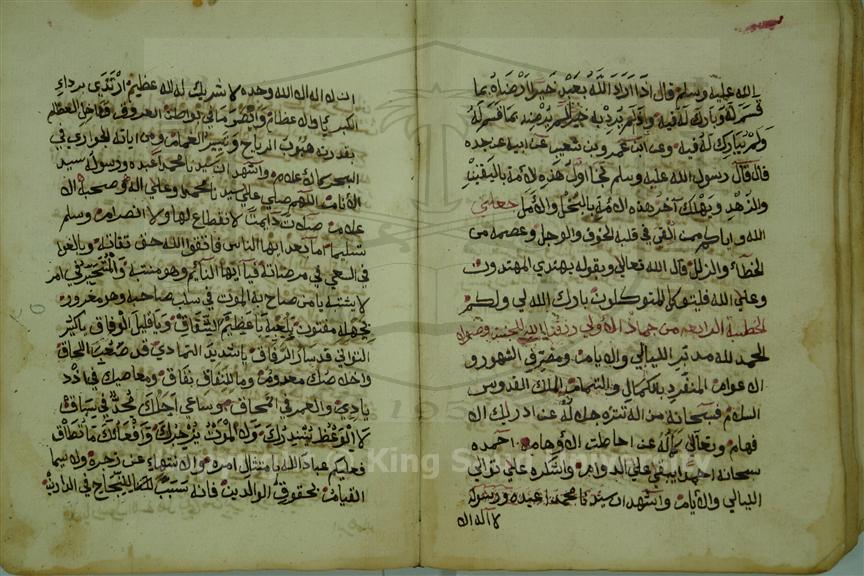 الله عليه وسلم قال اذا اراد الله بعبد خيرا ارضاه بما
قسم له وبارك له فيه وان لم يرد به خيرا لم يرضه بما قسم له
ولم يبارك له فيه وعن عمرو بن شعيب عن ابيه عن جده
قال قال رسول الله عليه وسلم نجى اول هذه الامة باليقين
والزهد ويهلك اخر هذه الامة بالبخل والامل جعلني
الله واياكم ممن القي في قلبه الخوف والوجل وعصمه من
الخطاء والزلل قال الله تعالى وبقوله يهتدي المهتدون
وعلي الله فليتوكل المتوكلون بارك الله لي ولكم
الخطبة الرابعه من جماد الاولي
الحمد لله مدبر الليالي والايام ومصرف الشهور و
الاعوام المنفرد بالكمال والتمام الملك القدوس
السلام فسبحانه من اله تنزه جلاله عن ادراك الا
فهام وتعالى كماله عن احاطت الاوهام احمده
سبحانه احمد ايبقي علي الدوام واشكره علي توالي
الليالي والايام واشهد ان سيدنا محمدا عبده ورسوله
لا اله الا
ان لا اله الا الله وحده لا شريك له اله عظيم ارتدي برداء
الكبرياء والعظام
بقدرته هبوب الرياح وتسيير الغمام ومن اياته الجواري في
البحر كالاعلام واشهد ان سيدنا محمدا عبده ورسوله سيد
الانام اللهم صلي علي سيدنا محمد وعلي اله وصحبه الا
علام صلات دايمتا لا انقطاع لها ولا انصرام وسلم
تسليما اما بعد ايها الناس فاتقوا الله حق تقاته
في السعي في مرضاته فيا ايها النائم وهو منتبه والمتحير في امر
لا يشتبه يا من صاح به الموت في سلب صاحبه وهو مغرور
بجهله مفتون بلعبه يا عظيم الشقاق ويا قليل الوفاق يا كثير
التواني قد سار الرفاق يا شديد التمادي قد صعب اللحاق
واخلاصك معدوم وما للنفاق نفاق ومعاصيك في ازد
يادي والعمر في انمحاق وساعي اجلك مجد في سياق
لا الوعظ ينذرك ولا الموت يزجرك ما تطاق
فعليكم عباد الله بامتثال امره والانتهاء عن زجره ولا سيما
القيام بحقوق الوالدين فانه سبب للنجاح في الدارين